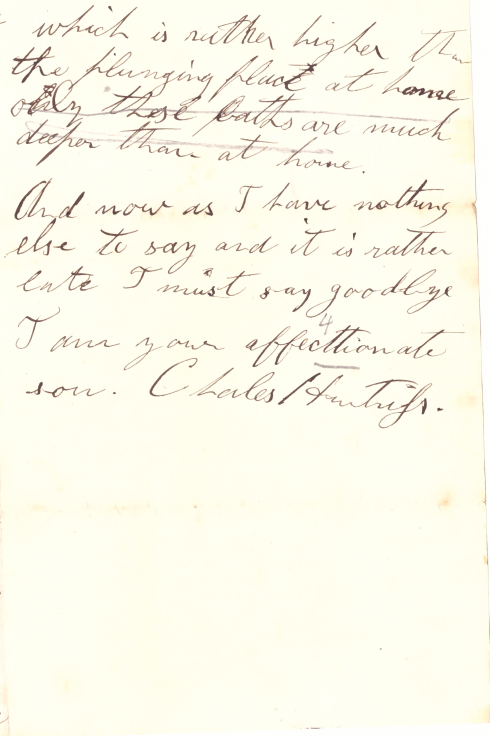 which is ruther higher than
the plunging place at home
only these baths are much
deeper than at home.
And now as I have nothing
else to say and it is rather
late I must say goodbye
4
I am your affecttionate
son. Chales